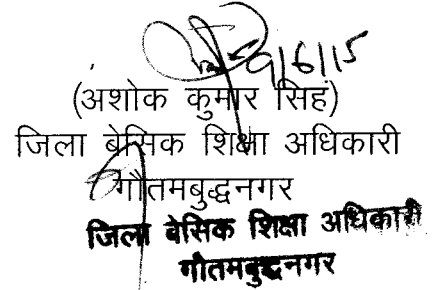 9/6/15
(अशोक कुमार सिहं)
जिला बेसिक शिक्षा अधिकारी
गौतमबुद्धनगर
जिला बेसिक शिक्षा अधिकारी
गौतमबुद्धनगर